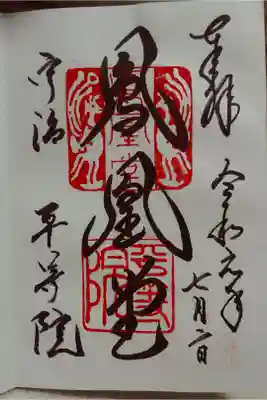 奉拝
令和元年
七月二日
鳳凰堂
宇治 平等院